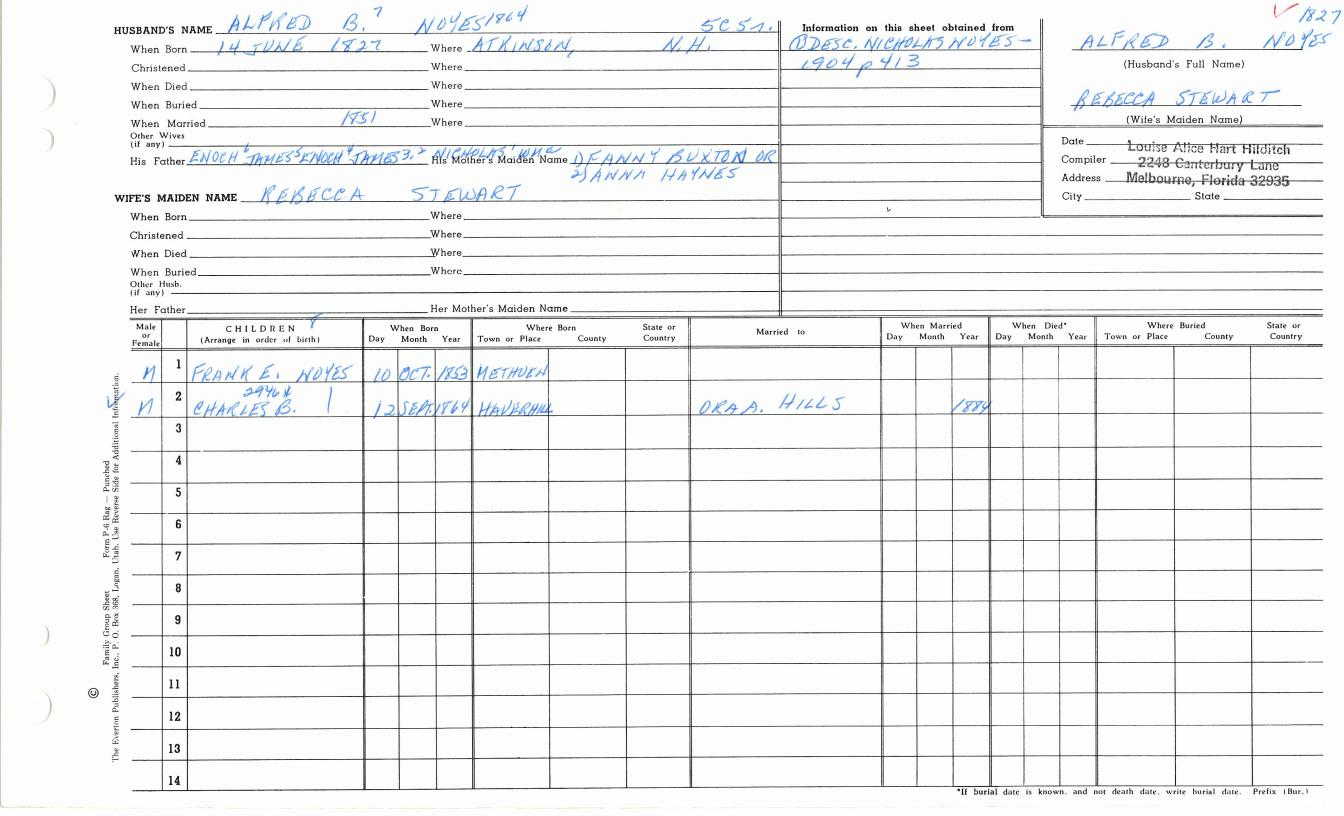 ✓ 1827
HUSBAND'S NAME ALFRED B.⁷ NOYES 1864 5C5r.
When Born 14 JUNE 1827 Where ATKINSON, N.H.
Christened Where
When Died Where
When Buried Where
When Married 1851 Where
Other Wives
(if any)
His Father ENOCH⁶ JAMES⁵ ENOCH⁴ JAMES 3.² NICHOLAS' His Mother's Maiden Name 1) FANNY BUXTON OR
2) ANNA HAYNES
WIFE'S MAIDEN NAME REBECCA STEWART
When Born Where
Christened Where
When Died Where
When Buried Where
Other Husb.
(if any)
Her Father Her Mother's Maiden Name
Information on this sheet obtained from
① DESC. NICHOLAS NOYES —
1904 p 413
ALFRED B. NOYES
(Husband's Full Name)
REBECCA STEWART
(Wife's Maiden Name)
Date
Compiler
Address
City State
Louise Alice Hart Hilditch
2248 Canterbury Lane
Melbourne, Florida 32935
Male or Female
CHILDREN 8
(Arrange in order of birth)
When Born
Day Month Year
Where Born
Town or Place County
State or Country
Married to
When Married
Day Month Year
When Died*
Day Month Year
Where Buried
Town or Place County
State or Country
M 1 FRANK E. NOYES 10 OCT. 1853 METHUEN
2946
✓ M 2 CHARLES B. 12 SEPT. 1864 HAVERHILL ORA A. HILLS 1884
3
4
5
6
7
8
9
10
11
12
13
14
*If burial date is known, and not death date, write burial date. Prefix (Bur.)
© Family Group Sheet Form P-6 Rag — Punched
The Everton Publishers, Inc., P. O. Box 368, Logan, Utah. Use Reverse Side for Additional Information.